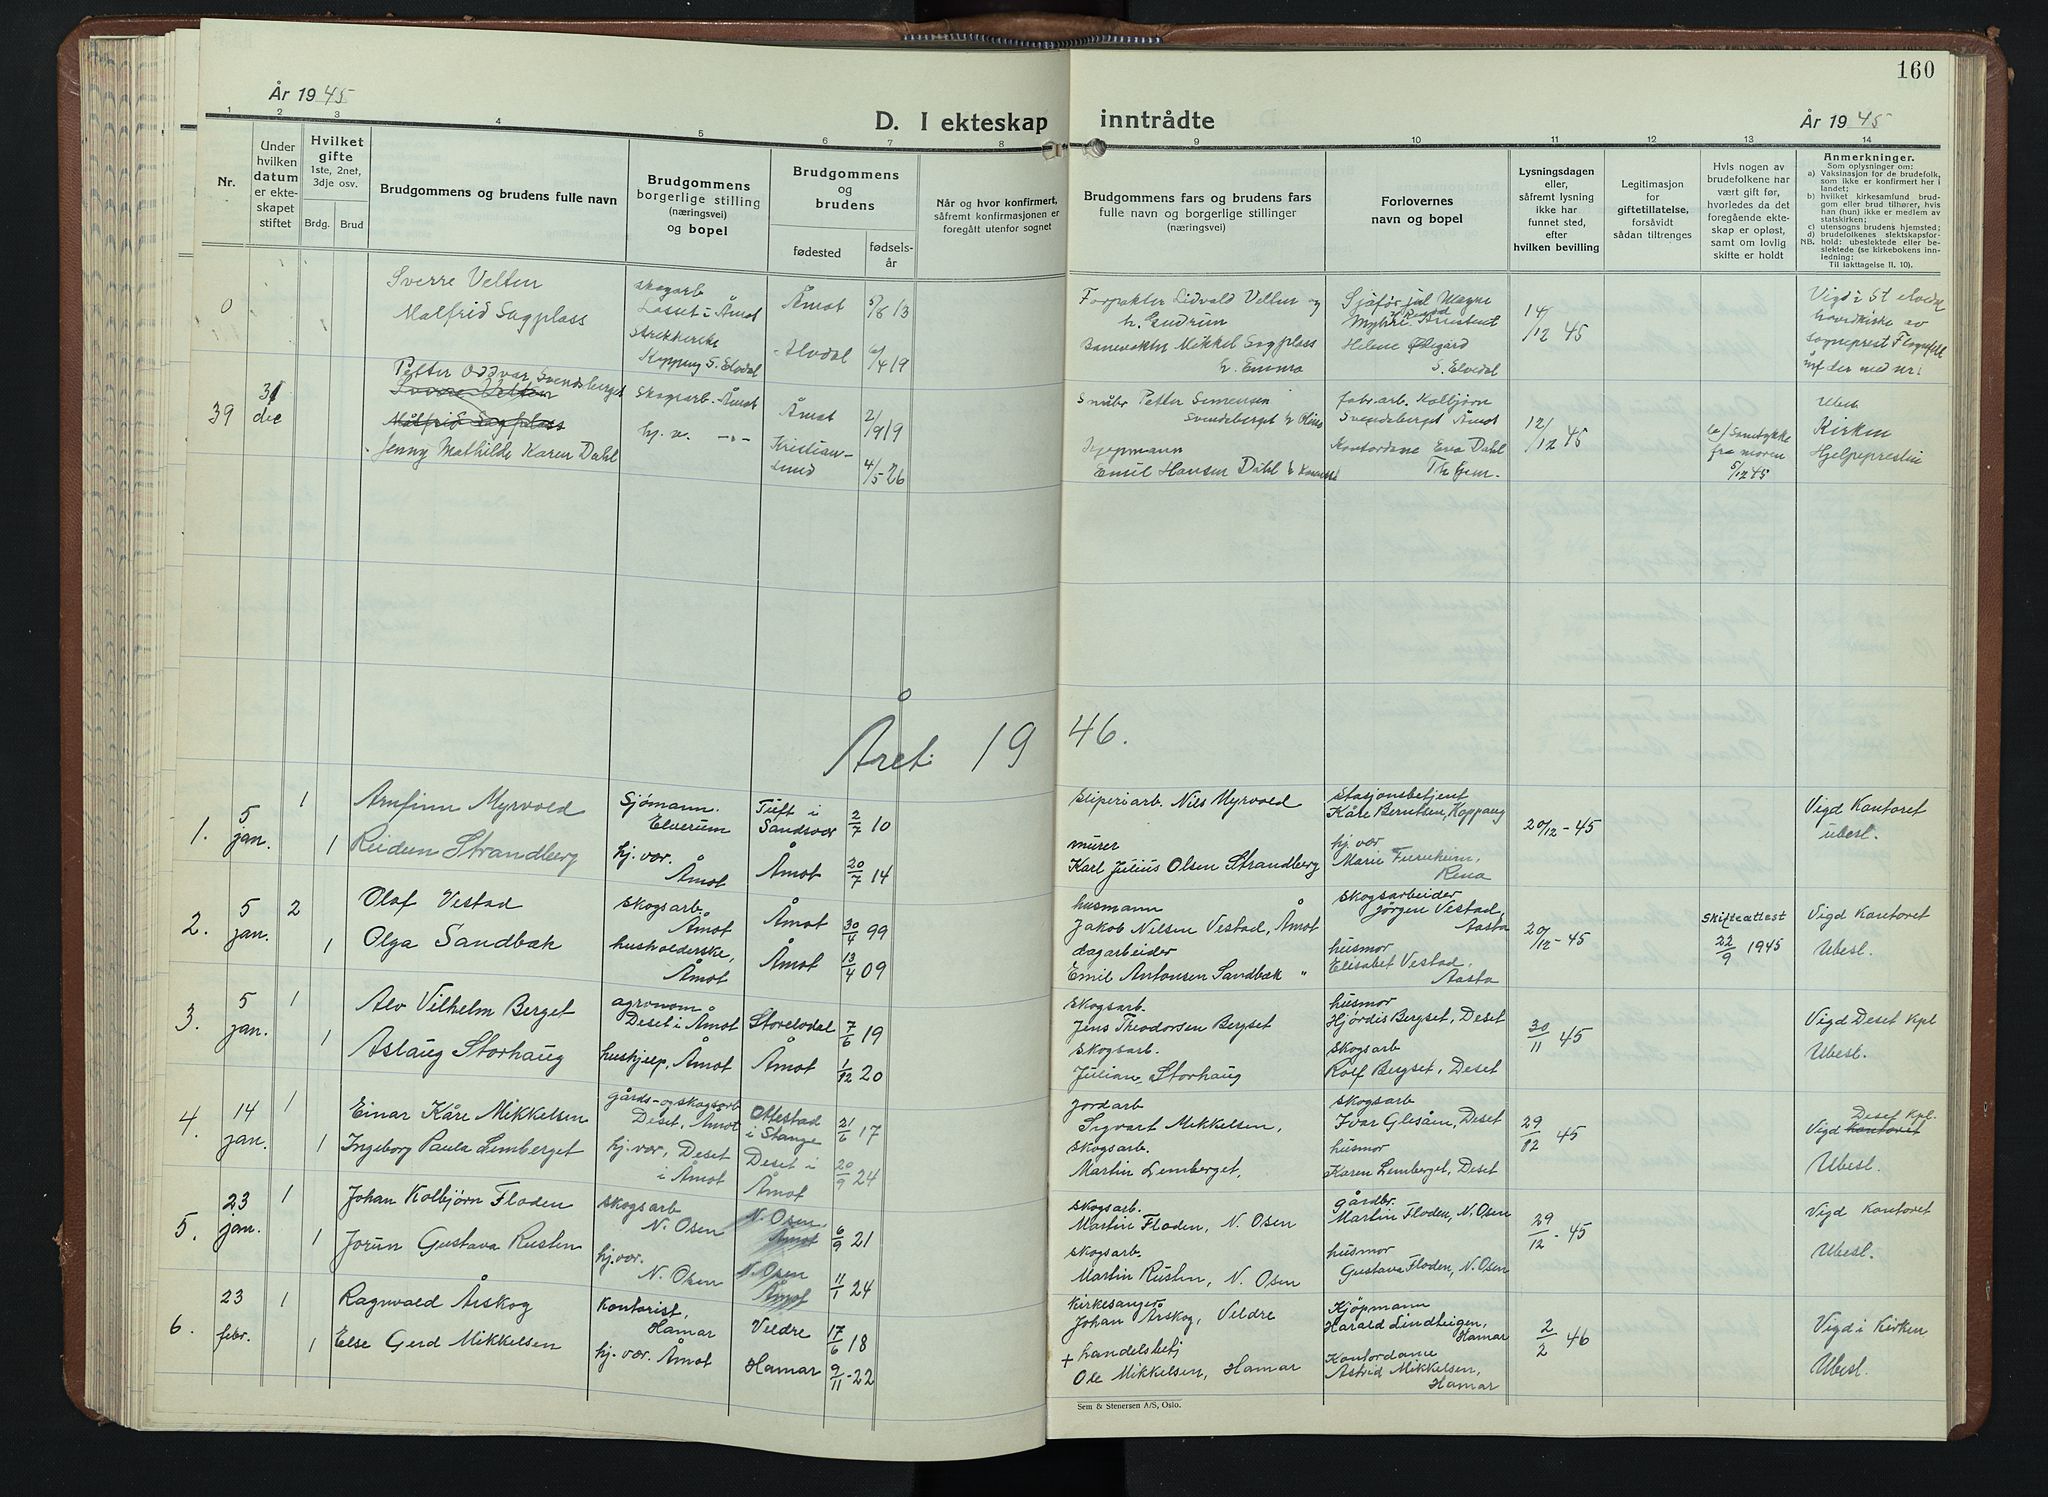 160
År 1945
D. I ekteskap inntrådte
År 1945
1 2 3 4 5 6 7 8 9 10 11 12 13 14
Nr.
Under hvilken datum er ekteskapet stiftet
Hvilket gifte 1ste, 2net, 3dje osv.
Brdg. Brud
Brudgommens og brudens fulle navn
Brudgommens borgerlige stilling (næringsvei) og bopel
Brudgommens og brudens
fødested
fødselsår
Når og hvor konfirmert, såfremt konfirmasjonen er foregått utenfor sognet
Brudgommens fars og brudens fars fulle navn og borgerlige stillinger (næringsvei)
Forlovernes navn og bopel
Lysningsdagen eller, såfremt lysning ikke har funnet sted, efter hvilken bevilling
Legitimasjon for giftetillatelse, forsåvidt sådan tiltrenges
Hvis nogen av brudefolkene har vært gift før, hvorledes da det foregående ekteskap er opløst, samt om lovlig skifte er holdt
Anmerkninger.
Som oplysninger om:
a) Vaksinasjon for de brudefolk, som ikke er konfirmert her i landet;
b) hvilket kirkesamfund brudgom eller brud tilhører, hvis han (hun) ikke er medlem av statskirken;
c) utensogns brudens hjemsted;
d) brudefolkenes slektskapsforhold: ubeslektede eller beslektede (se kirkebokens innledning;
NB. Til iakttagelse II. 10).
0
Sverre Velten
Målfrid Sagplass
skogarb
Losset i Åmot
Koppang S. Elvdal
Åmot 5/8 13
Alvdal 6/4 19
Forpakter Lidvald Velten og
h. Gudrun
Banevokter Mikkel Sagplass
h. Emma
Sjåfør Magne
Helene Øegård
S. Elvdal
14/12 45
Vigd i St Elvedal
hovedkirke av
sogneprest
39
31 dec
Petter Oddvar Svendsberget
Sverre Velten
Målfrid Sagplass
Jenny Mathilde Karen Dahl
Skogsarb. Åmot
hj. v. -"-
Åmot 2/9 19
Kristiansund 4/5-26
Småbr Petter Simensen
Svendsberget
Emil Hansen Dahl
fabr.arb. Kolbjørn
Svendsberget Åmot
Kontordame Eva Dahl
Th.hjem-
12/12 45
Samtykke
fra moren
5/12 45
Ubesl.
Kirken
Hjelpepresten
Året 1946.
1.
5 jan.
1
1
Arnfinn Myrvold
Reidun Strandberg
Sjømann.
Elverum
hj.vær.
Åmot
Tuft i
Sandsvær 2/7 10
Åmot 20/7 14
Sliperiarb. Nils Myrvold
murer
Karl Julius Olsen Strandberg
Stasjonsbetjent
Kåre Berntsen, Koppang
hj. vær
Marie Furuheim,
Rena
20/12-45
Vigd Kontoret
ubesl.
2.
5 jan.
2
1
Olaf Vestad
Olga Sandbæk
skogsarb.
Åmot
husholderske,
Åmot
Åmot 30/4 99
Åmot 13/4 09
husmann
Jakob Nilsen Vestad, Åmot
dagarbeider
Emil Antonsen Sandbæk "
skogsarbeider
Jørgen Vestad,
Aasta
husmor
Elisabet Vestad,
Aasta
20/12-45
Skifteattest
22/9 1945
Vigd Kontoret
Ubesl.
3.
5 jan.
1
1
Alv Vilhelm Berget
Aslaug Storhaug
agronom
Deset i Åmot
hushjelp, Åmot
Storelvdal 7/6 19
Åmot 1/12 20
Skogsarb.
Jens Theodorsen Bergset
Skogsarb.
Julian Storhaug
husmor
Hjørdis Bergset, Deset
Skogsarb
Rolf Bergset, Deset
30/11 45
Vigd Deset Kpl
Ubesl.
4.
14 jan.
1
1
Einar Kåre Mikkelsen
Ingeborg Paula Lemberget
gårds- og skogsarb
Deset, Åmot
hj. vær, Deset
i Åmot
Ottestad
i Stange 21/6 17
Deset i
Åmot 20/9 24
Jordarb
Sigvart Mikkelsen,
Skogsarb.
Martin Lemberget,
skogsarb
Ivar Glesåen, Deset
husmor
Karen Lemberget, Deset
29/12 45
Deset Kpl.
Vigd Kontoret
Ubesl.
5.
23 jan.
1
1
Johan Kolbjørn Floden
Jorun Gustava Rusten
skogsarb
N. Osen
hj.vær.
N. Osen
N. Osen
Åmot 6/9 21
N. Osen
Åmot 11/1 24
skogsarb.
Martin Floden, N. Osen
skogsarb.
Martin Rusten, N. Osen
gårdbr.
Martin Floden, N. Osen
husmor
Gustava Floden, N. Osen
29/12-45
Vigd Kontoret
Ubesl.
6.
23 febr.
1
1
Ragnvald Årskog
Else Gerd Mikkelsen
Kontorist,
Hamar
hj. vær. Åmot
Veldre 17/6 18
Hamar 9/11-22
Kirkesanger
Johan Årskog, Veldre
+ handelsbetj
Ole Mikkelsen, Hamar
Kjøpmann
Harald Lindteigen,
Hamar
Kontordame
Astrid Mikkelsen,
Hamar
2/2 46
Vigd i Kirken
Ubesl.
Sem & Stenersen A/S, Oslo.